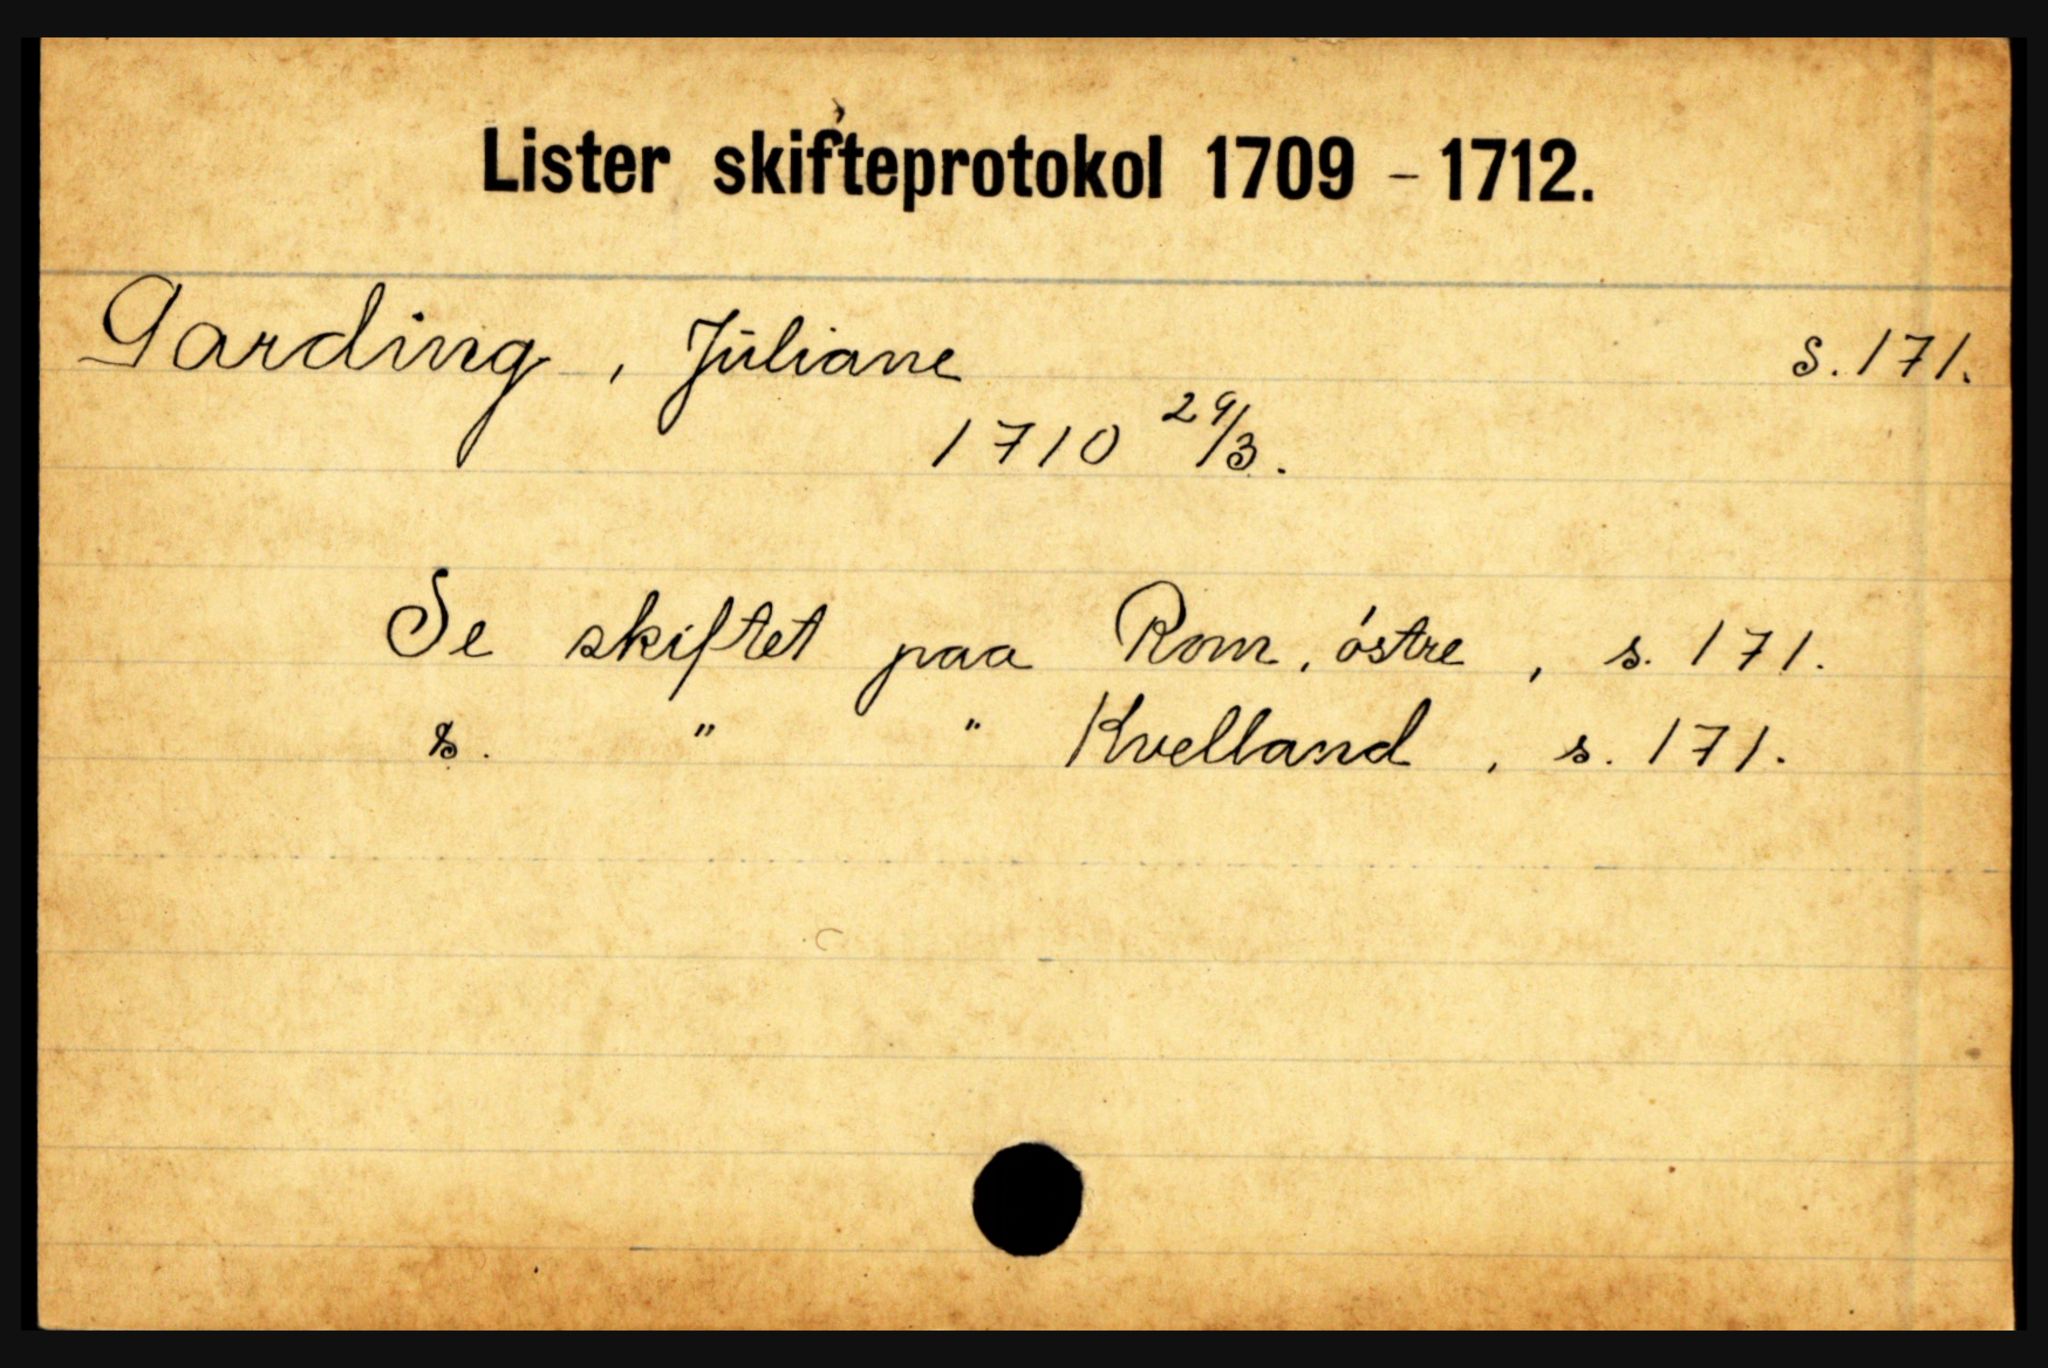 Lister skifteprotokol 1709 - 1712.
Garding, Juliane s. 171.
1710 29/3.
Se skiftet paa Rom, östre, s. 171.
s. " " Kvelland, s. 171.